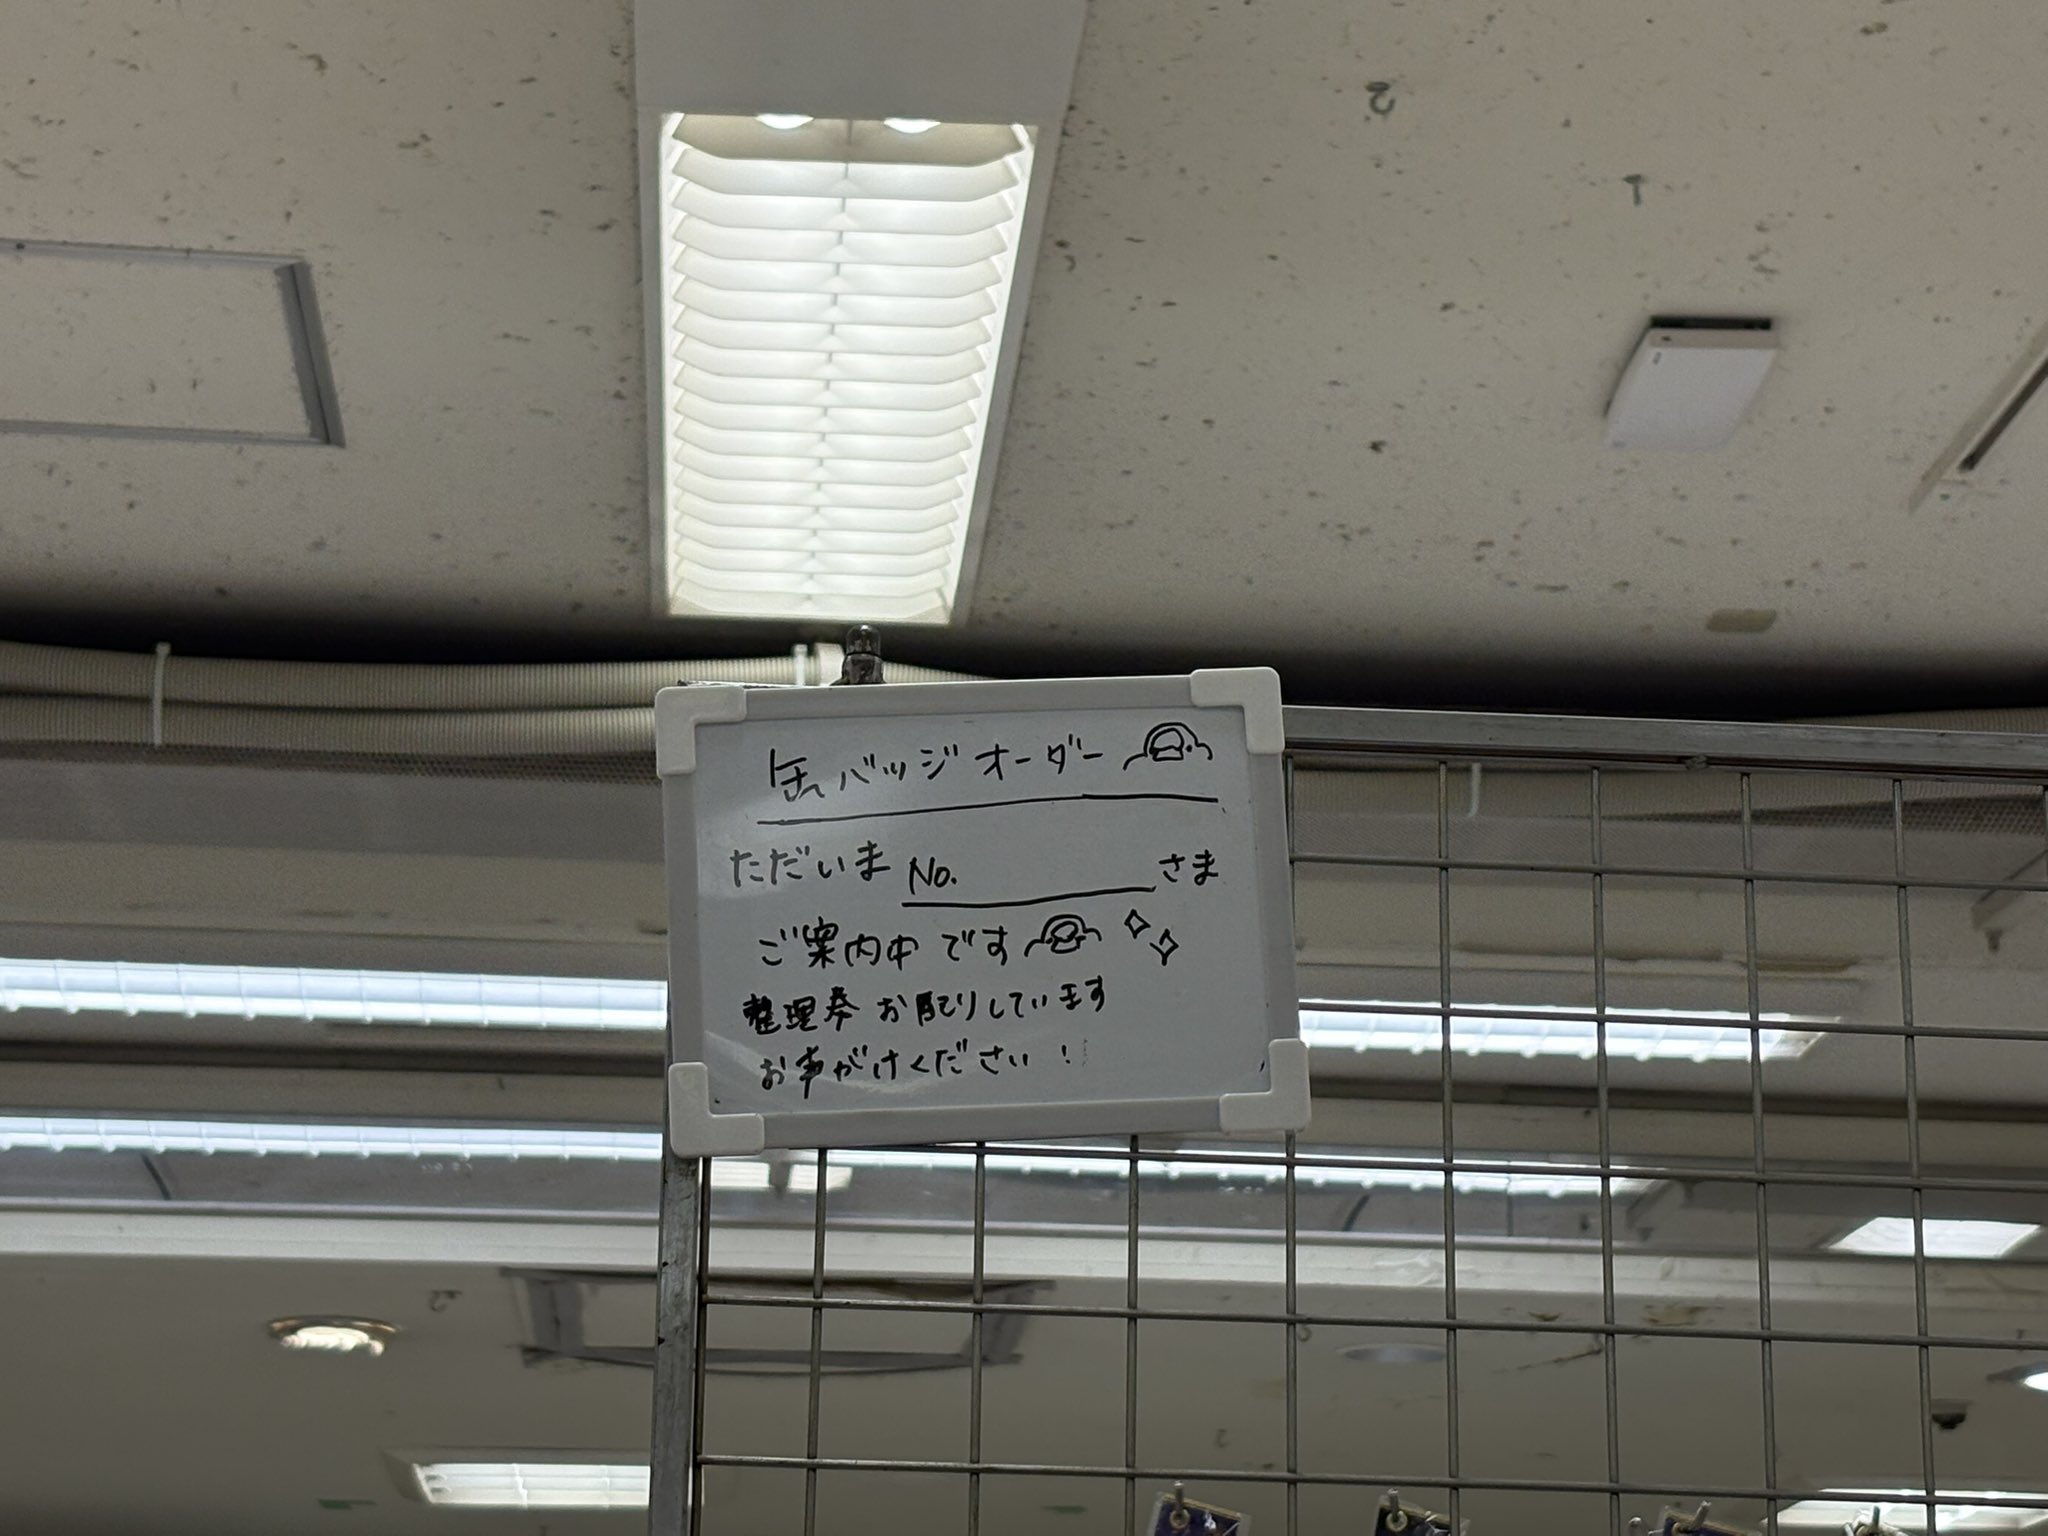 缶バッジオーダー
ただいま No. さま
ご案内中です
整理券お配りしています
お声がけください！